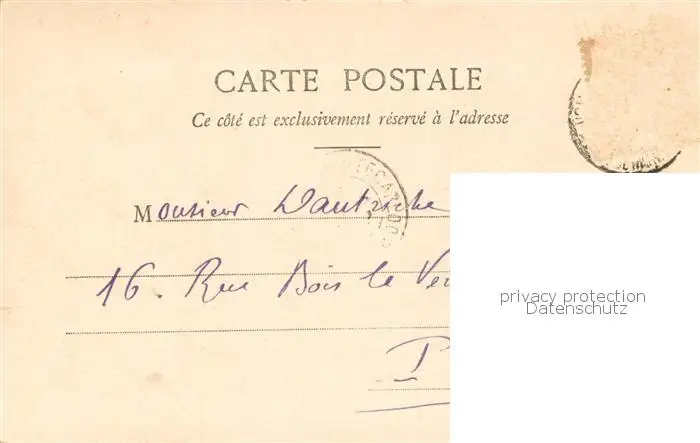 CARTE POSTALE
Ce côté est exclusivement réservé à l'adresse
Monsieur Dautriche
16. Rue Bois le Ve
P
privacy protection
Datenschutz